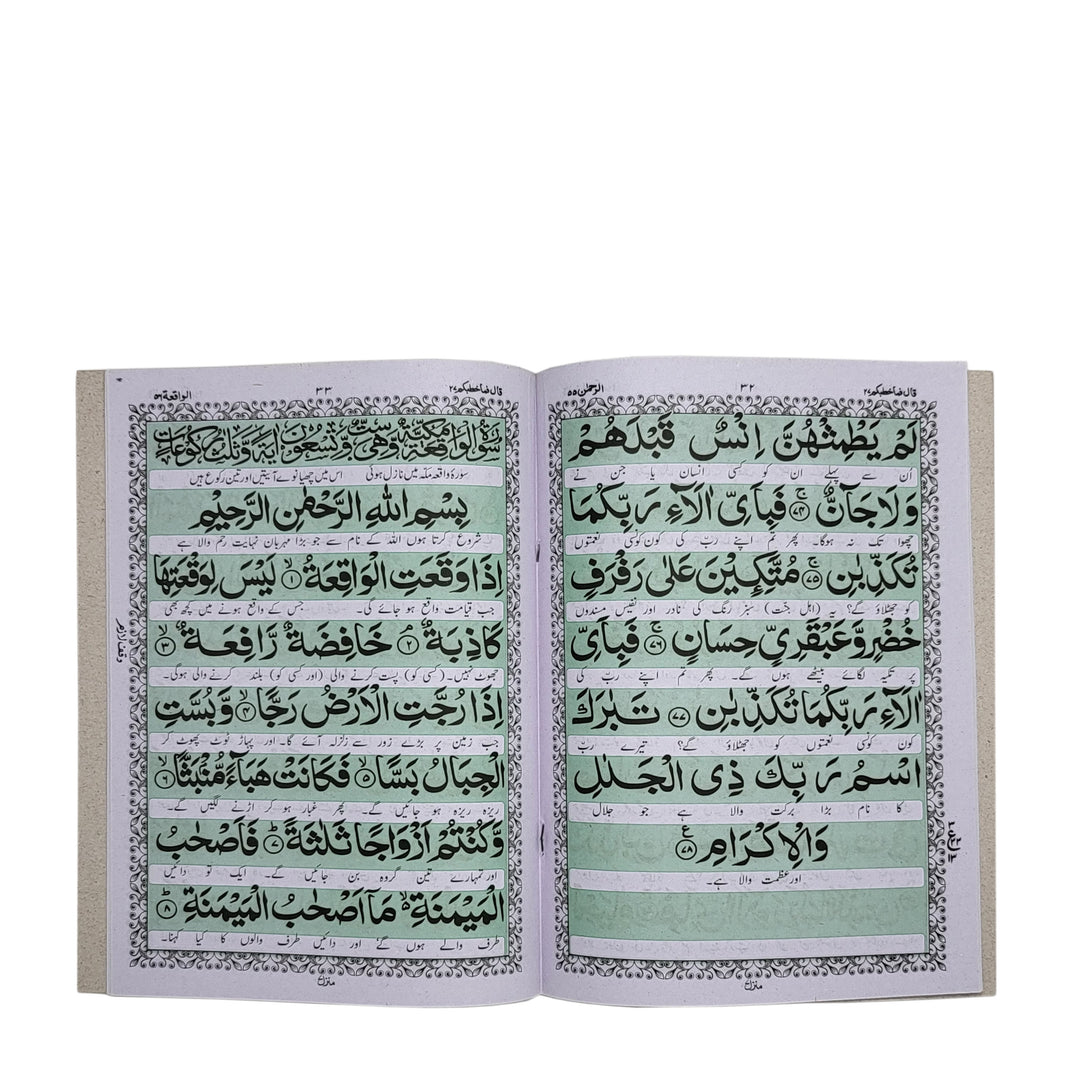 قال فما خطبكم ٢٧
٣٢
الرحمٰن ٥٥
لَمْ يَطْمِثْهُنَّ اِنْسٌ قَبْلَهُمْ
ان سے پہلے ان کو کسی انسان یا جن نے
وَلَا جَآنٌّ ۚ ٧٤ فَبِاَىِّ اٰلَآءِ رَبِّكُمَا
چھوا تک نہ ہوگا۔ پھر تم اپنے ربّ کی کون کونسی نعمتوں
تُكَذِّبٰنِ ۚ ٧٥ مُتَّكِـِٕيْنَ عَلٰى رَفْرَفٍ
کو جھٹلاؤ گے؟ یہ (اہل جنّت) سبز رنگ کی نادر اور نفیس مسندوں
خُضْرٍ وَّعَبْقَرِىٍّ حِسَانٍ ۚ ٧٦ فَبِاَىِّ
پر تکیہ لگائے بیٹھے ہوں گے۔ پھر تم اپنے ربّ کی
اٰلَآءِ رَبِّكُمَا تُكَذِّبٰنِ ٧٧ تَبٰرَكَ
کون کونسی نعمتوں کو جھٹلاؤ گے؟ تیرے ربّ
اسْمُ رَبِّكَ ذِى الْجَلٰلِ
کا نام بڑا برکت والا ہے جو جلال
وَالْاِكْرَامِ ٧٨ ع
اور عظمت والا ہے۔
منزل ٧
٣٣
الواقعة ٥٦
قال فما خطبكم ٢٧
سُوْرَةُ الْوَاقِعَةِ مَكِّيَّةٌ وَّهِىَ سِتٌّ وَّتِسْعُوْنَ اٰيَةً وَّثَلٰثُ رُكُوْعَاتٍ
سورۂ واقعہ مکہ میں نازل ہوئی اس میں چھیانوے آیتیں اور تین رکوع ہیں
بِسْمِ اللّٰهِ الرَّحْمٰنِ الرَّحِيْمِ
شروع کرتا ہوں اللہ کے نام سے جو بڑا مہربان نہایت رحم والا ہے
اِذَا وَقَعَتِ الْوَاقِعَةُ ۙ ١ لَيْسَ لِوَقْعَتِهَا
جب قیامت واقع ہو جائے گی۔ جس کے واقع ہونے میں کچھ بھی
كَاذِبَةٌ ۘ ٢ خَافِضَةٌ رَّافِعَةٌ ۙ ٣
جھوٹ نہیں۔ (کسی کو) پست کرنے والی (اور کسی کو) بلند کرنے والی ہوگی۔
اِذَا رُجَّتِ الْاَرْضُ رَجًّا ۙ ٤ وَّبُسَّتِ
جب زمین پر بڑے زور سے زلزلہ آئے گا۔ اور پہاڑ ٹوٹ پھوٹ کر
الْجِبَالُ بَسًّا ۙ ٥ فَكَانَتْ هَبَآءً مُّنْۢبَثًّا ۙ ٦
ریزہ ریزہ ہو جائیں گے۔ پھر غبار ہو کر اڑنے لگیں گے۔
وَّكُنْتُمْ اَزْوَاجًا ثَلٰثَةً ؕ ٧ فَاَصْحٰبُ
اور تمہارے تین گروہ بن جائیں گے۔ ایک تو دائیں
الْمَيْمَنَةِ ۙ مَاۤ اَصْحٰبُ الْمَيْمَنَةِ ؕ ٨
طرف والے ہوں گے اور دائیں طرف والوں کا کیا کہنا۔
منزل ٧